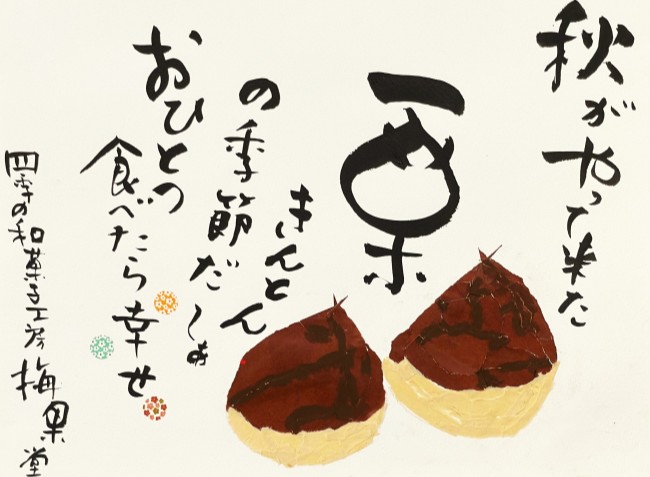 秋がやって来た
栗
きんとん
の季節だ〜ぁ
おひとつ
食べたら幸せ
四季の和菓子工房 梅果堂